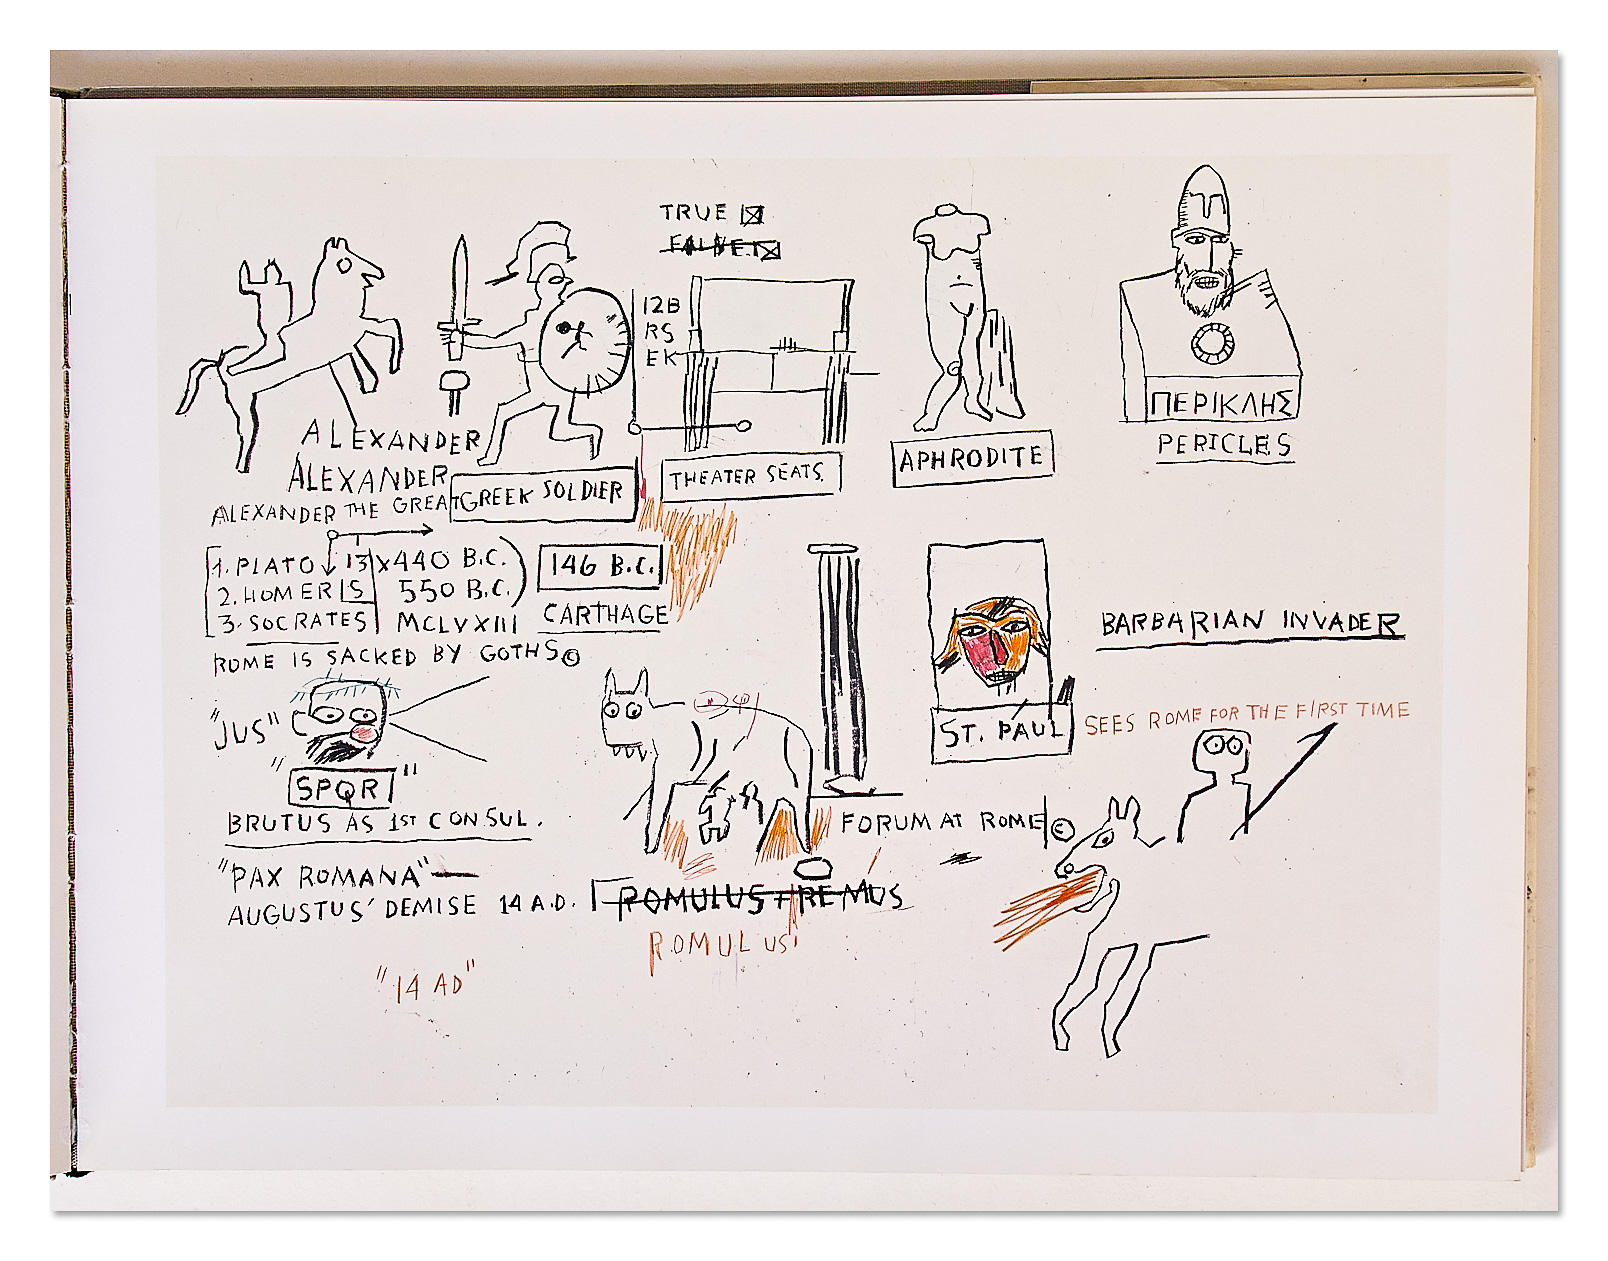 TRUE
12B
RS
EK
ΠΕΡΙΚΛΗΣ
PERICLES
ALEXANDER
ALEXANDER
ALEXANDER THE GREAT
GREEK SOLDIER
THEATER SEATS.
APHRODITE
1. PLATO 13 x 440 B.C.
2. HOMER IS 550 B.C.
3. SOCRATES MCLVXIII
146 B.C.
CARTHAGE
ROME IS SACKED BY GOTHS©
BARBARIAN INVADER
"JUS"
"SPQR"
BRUTUS AS 1ST CONSUL.
ST. PAUL
SEES ROME FOR THE FIRST TIME
FORUM AT ROME ©
"PAX ROMANA"—
AUGUSTUS' DEMISE 14 A.D.
ROMULUS + REMUS
ROMULUS
"14 AD"